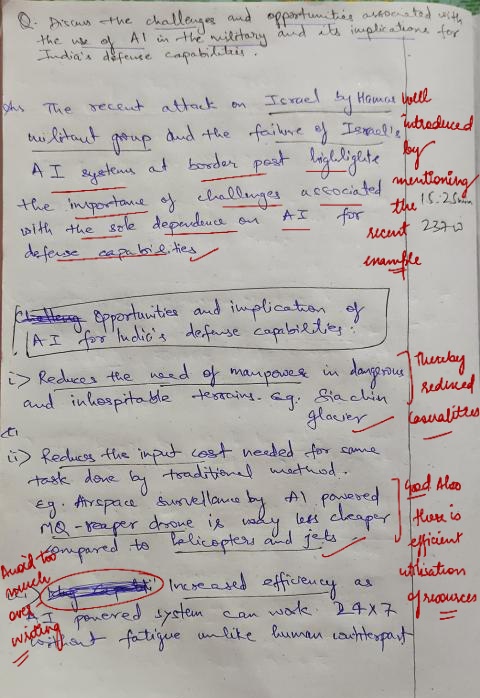 Q. Discuss the challenges and opportunities associated with
the use of AI in the military and its implications for
India's defense capabilities.
Ans The recent attack on Israel by Hamas
militant group and the failure of Israel's
AI systems at border post highlights
the importance of challenges associated
with the sole dependence on AI for
defense capabilities
well
introduced
by
mentioning
the
recent
example
15.25min
237 W
Challeng Opportunities and implication of
AI for India's defense capabilities:
i) Reduces the need of manpower in dangerous
and inhospitable terrains. eg. Siachin
glacier
Thereby
reduced
casualities
ii) Reduces the input cost needed for same
task done by traditional method.
eg. Airspace survellance by AI powered
MQ-reaper drone is way less cheaper
compared to helicopters and jets
Good Also
there is
efficient
utilisation
of resources
Avoid too
much
over
writing
Increased efficiency as
AI powered system can work 24x7
without fatigue unlike human counterpart